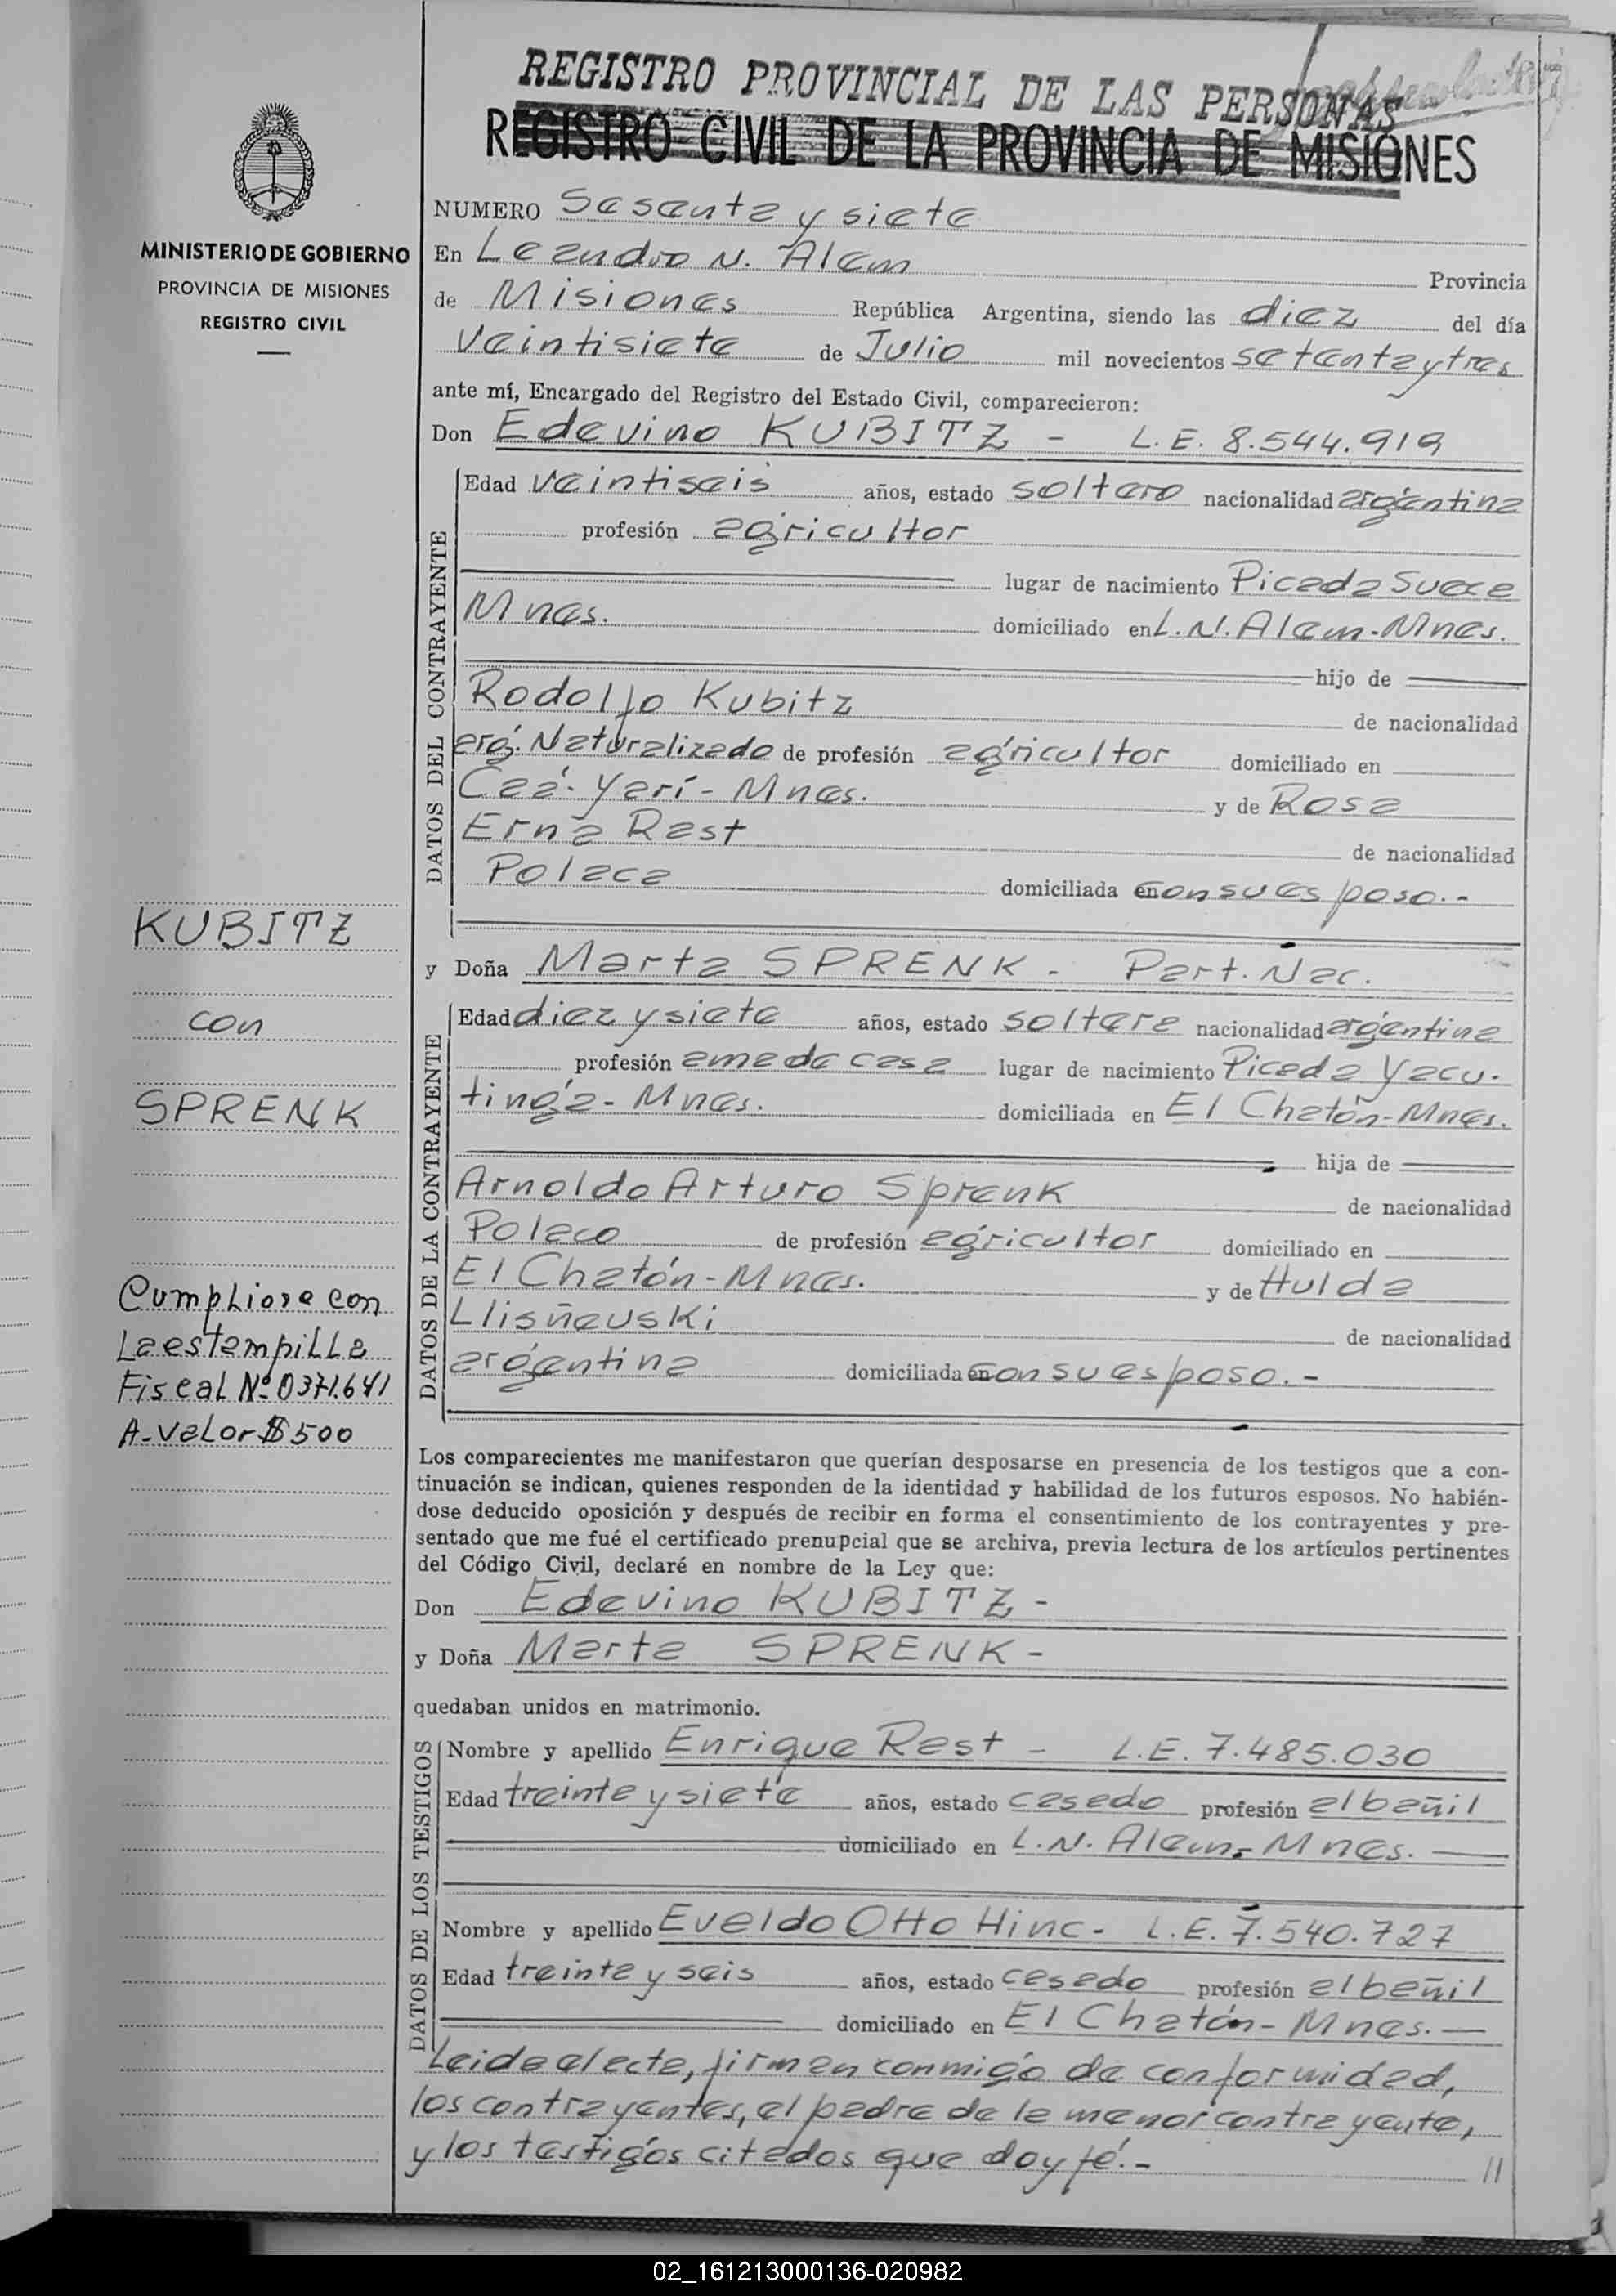 REGISTRO PROVINCIAL DE LAS PERSONAS
REGISTRO CIVIL DE LA PROVINCIA DE MISIONES
MINISTERIO DE GOBIERNO
PROVINCIA DE MISIONES
REGISTRO CIVIL
NUMERO Sesenta y siete
En Leandro N. Alem Provincia
de Misiones República Argentina, siendo las diez del día
veintisiete de Julio mil novecientos setenta y tres
ante mí, Encargado del Registro del Estado Civil, comparecieron:
Don Edevino KUBITZ - L.E. 8.544.919
DATOS DEL CONTRAYENTE
Edad veintiseis años, estado soltero nacionalidad argentina
profesión agricultor
lugar de nacimiento Picada Sueca
Mnes. domiciliado en L.N. Alem-Mnes.
hijo de
Rodolfo Kubitz de nacionalidad
arg. Naturalizado de profesión agricultor domiciliado en
Caá-Yarí-Mnes. y de Rosa
Erna Rast de nacionalidad
Polaca domiciliada en con su esposo.-
y Doña Marta SPRENK - Part. Nac.
DATOS DE LA CONTRAYENTE
Edad diez y siete años, estado soltera nacionalidad argentina
profesión ama de casa lugar de nacimiento Picada Yacu-
tinga-Mnes. domiciliada en El Chatón-Mnes.
hija de
Arnoldo Arturo Sprenk de nacionalidad
Polaco de profesión agricultor domiciliado en
El Chatón-Mnes. y de Hulda
Llisñeuski de nacionalidad
argentina domiciliada en con su esposo.-
KUBITZ
con
SPRENK
Cumpliose con
La estampilla
Fiscal Nº 0371.641
A-valor $ 500
Los comparecientes me manifestaron que querían desposarse en presencia de los testigos que a con-
tinuación se indican, quienes responden de la identidad y habilidad de los futuros esposos. No habién-
dose deducido oposición y después de recibir en forma el consentimiento de los contrayentes y pre-
sentado que me fué el certificado prenupcial que se archiva, previa lectura de los artículos pertinentes
del Código Civil, declaré en nombre de la Ley que:
Don Edevino KUBITZ -
y Doña Marta SPRENK -
quedaban unidos en matrimonio.
DATOS DE LOS TESTIGOS
Nombre y apellido Enrique Rast - L.E. 7.485.030
Edad treinta y siete años, estado casado profesión albañil
domiciliado en L.N. Alem-Mnes.
Nombre y apellido Evaldo Otto Hinc- L.E. 7.540.727
Edad treinta y seis años, estado casado profesión albañil
domiciliado en El Chatón-Mnes.
Leida el acta, firman conmigo de conformidad,
los contrayentes, el padre de la menor contrayente,
y los testigos citados que doy fé.- //
02_161213000136-020982